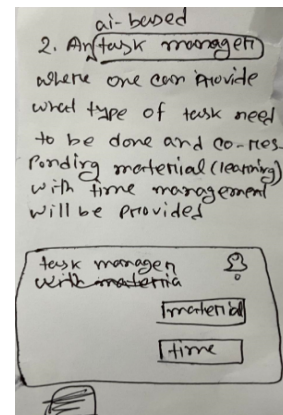 ai-based
2. An task manager
where one can provide
what type of task need
to be done and co-rres
ponding material (learning)
with time management
will be provided
task manager
with materia
material
time